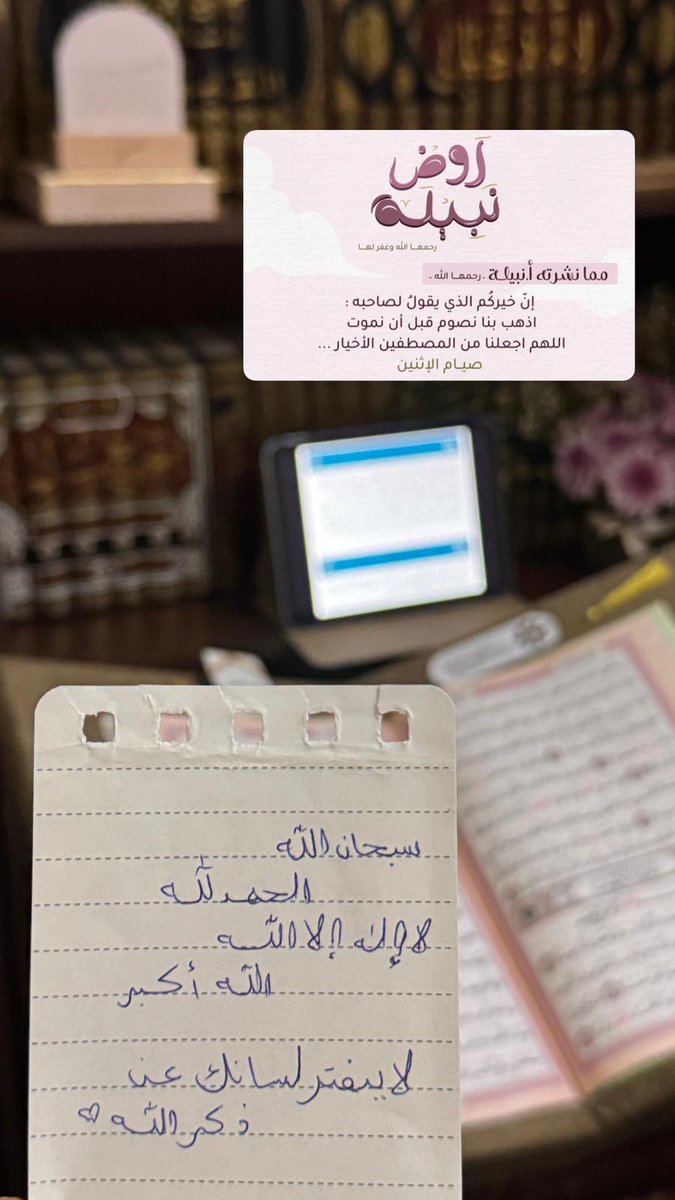 رَوْضُ
نَبِيْلَة
رحمهـا الله وغفر لهـا
مما نشرته أ.نبيلة - رحمهـا الله -
إنّ خيركُم الذي يقولُ لصاحبه :
اذهب بنا نصوم قبل أن نموت
اللهم اجعلنا من المصطفين الأخيار ...
صيـام الإثنين
سبحان الله
الحمد لله
لا إله إلا الله
الله أكبر
لا يفتر لسانك عن
ذكر الله ♡